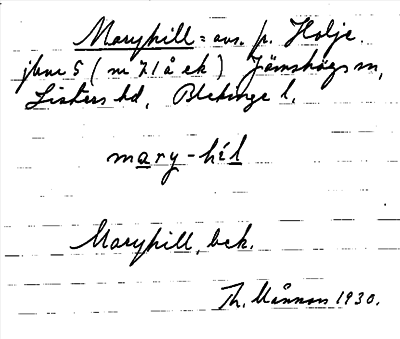 Maryhill = avs. p. Holje
jbnr 5 ( m 7.1 å ek ) Jämshögs sn,
Listers hd, Blekinge l.
mary-hil
Maryhill, bek.
Th. Månsson 1930.